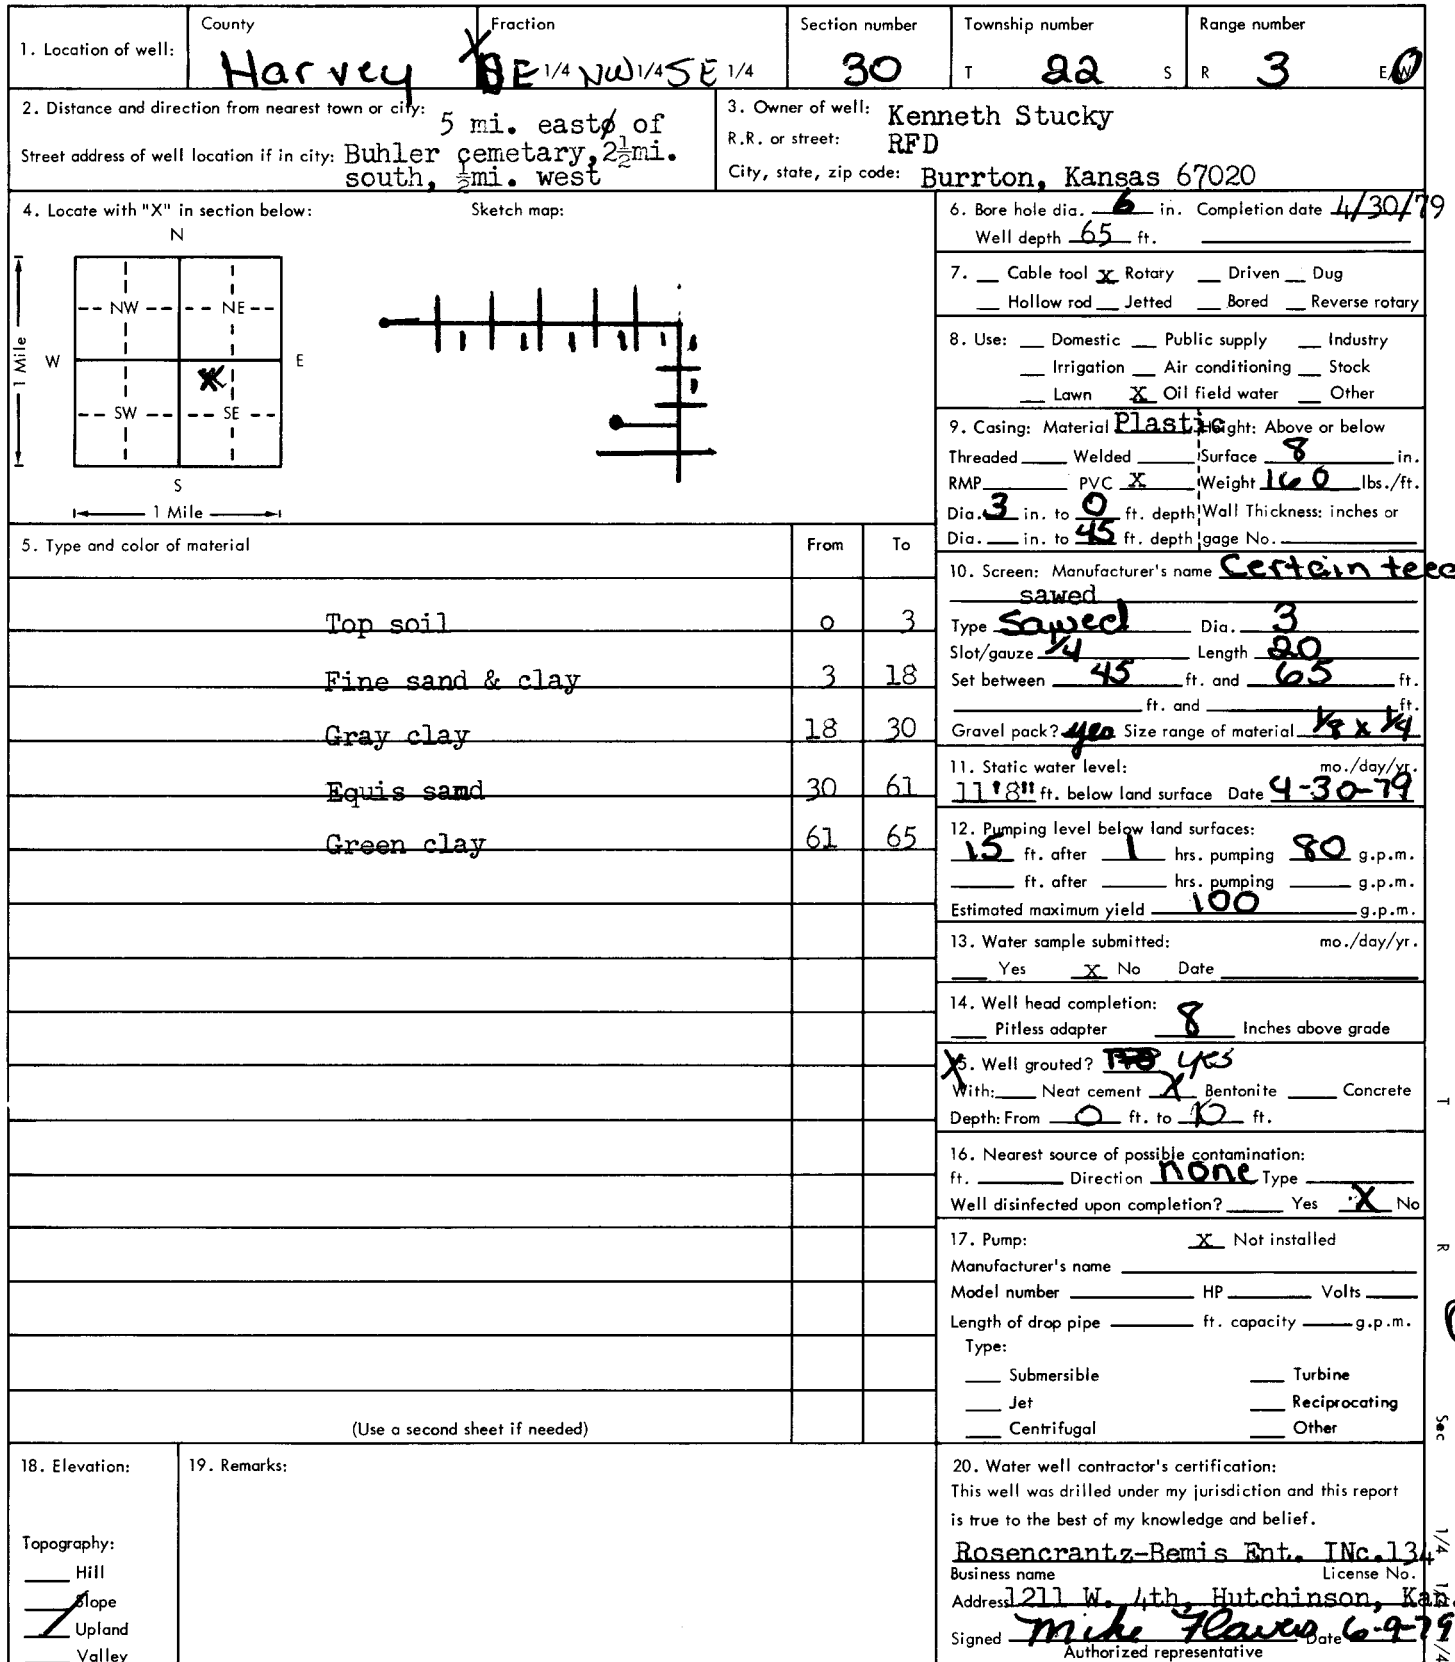 1. Location of well:
County
Harvey
Fraction
SE 1/4 NW 1/4 SE 1/4
Section number
30
Township number
T 22 S
Range number
R 3 E/W
2. Distance and direction from nearest town or city: 5 mi. east of
Street address of well location if in city: Buhler cemetary, 2½mi.
south, ½mi. west
3. Owner of well: Kenneth Stucky
R.R. or street: RFD
City, state, zip code: Burrton, Kansas 67020
4. Locate with "X" in section below:
Sketch map:
N
NW NE
W E
X
SW SE
S
1 Mile
1 Mile
5. Type and color of material From To
Top soil o 3
Fine sand & clay 3 18
Gray clay 18 30
Equis sand 30 61
Green clay 61 65
(Use a second sheet if needed)
6. Bore hole dia. 6 in. Completion date 4/30/79
Well depth 65 ft.
7. Cable tool X Rotary Driven Dug
Hollow rod Jetted Bored Reverse rotary
8. Use: Domestic Public supply Industry
Irrigation Air conditioning Stock
Lawn X Oil field water Other
9. Casing: Material Plastic Height: Above or below
Threaded Welded Surface 8 in.
RMP PVC X Weight 160 lbs./ft.
Dia. 3 in. to 0 ft. depth Wall Thickness: inches or
Dia. in. to 45 ft. depth gage No.
10. Screen: Manufacturer's name Certain teed
sawed
Type Sawed Dia. 3
Slot/gauze 1/4 Length 20
Set between 45 ft. and 65 ft.
ft. and ft.
Gravel pack? yes Size range of material 1/8 x 1/4
11. Static water level: mo./day/yr.
11'8" ft. below land surface Date 4-30-79
12. Pumping level below land surfaces:
15 ft. after 1 hrs. pumping 80 g.p.m.
ft. after hrs. pumping g.p.m.
Estimated maximum yield 100 g.p.m.
13. Water sample submitted: mo./day/yr.
Yes X No Date
14. Well head completion:
Pitless adapter 8 Inches above grade
X 5. Well grouted? yes
With: Neat cement X Bentonite Concrete
Depth: From 0 ft. to 10 ft.
16. Nearest source of possible contamination:
ft. Direction none Type
Well disinfected upon completion? Yes X No
17. Pump: X Not installed
Manufacturer's name
Model number HP Volts
Length of drop pipe ft. capacity g.p.m.
Type:
Submersible Turbine
Jet Reciprocating
Centrifugal Other
18. Elevation:
Topography:
Hill
Slope
Upland
Valley
19. Remarks:
20. Water well contractor's certification:
This well was drilled under my jurisdiction and this report
is true to the best of my knowledge and belief.
Rosencrantz-Bemis Ent. INc. 134
Business name License No.
Address 1211 W. 4th, Hutchinson, Kan.
Signed Mike Flavers Date 6-9-79
Authorized representative
T
R
Sec
1/4